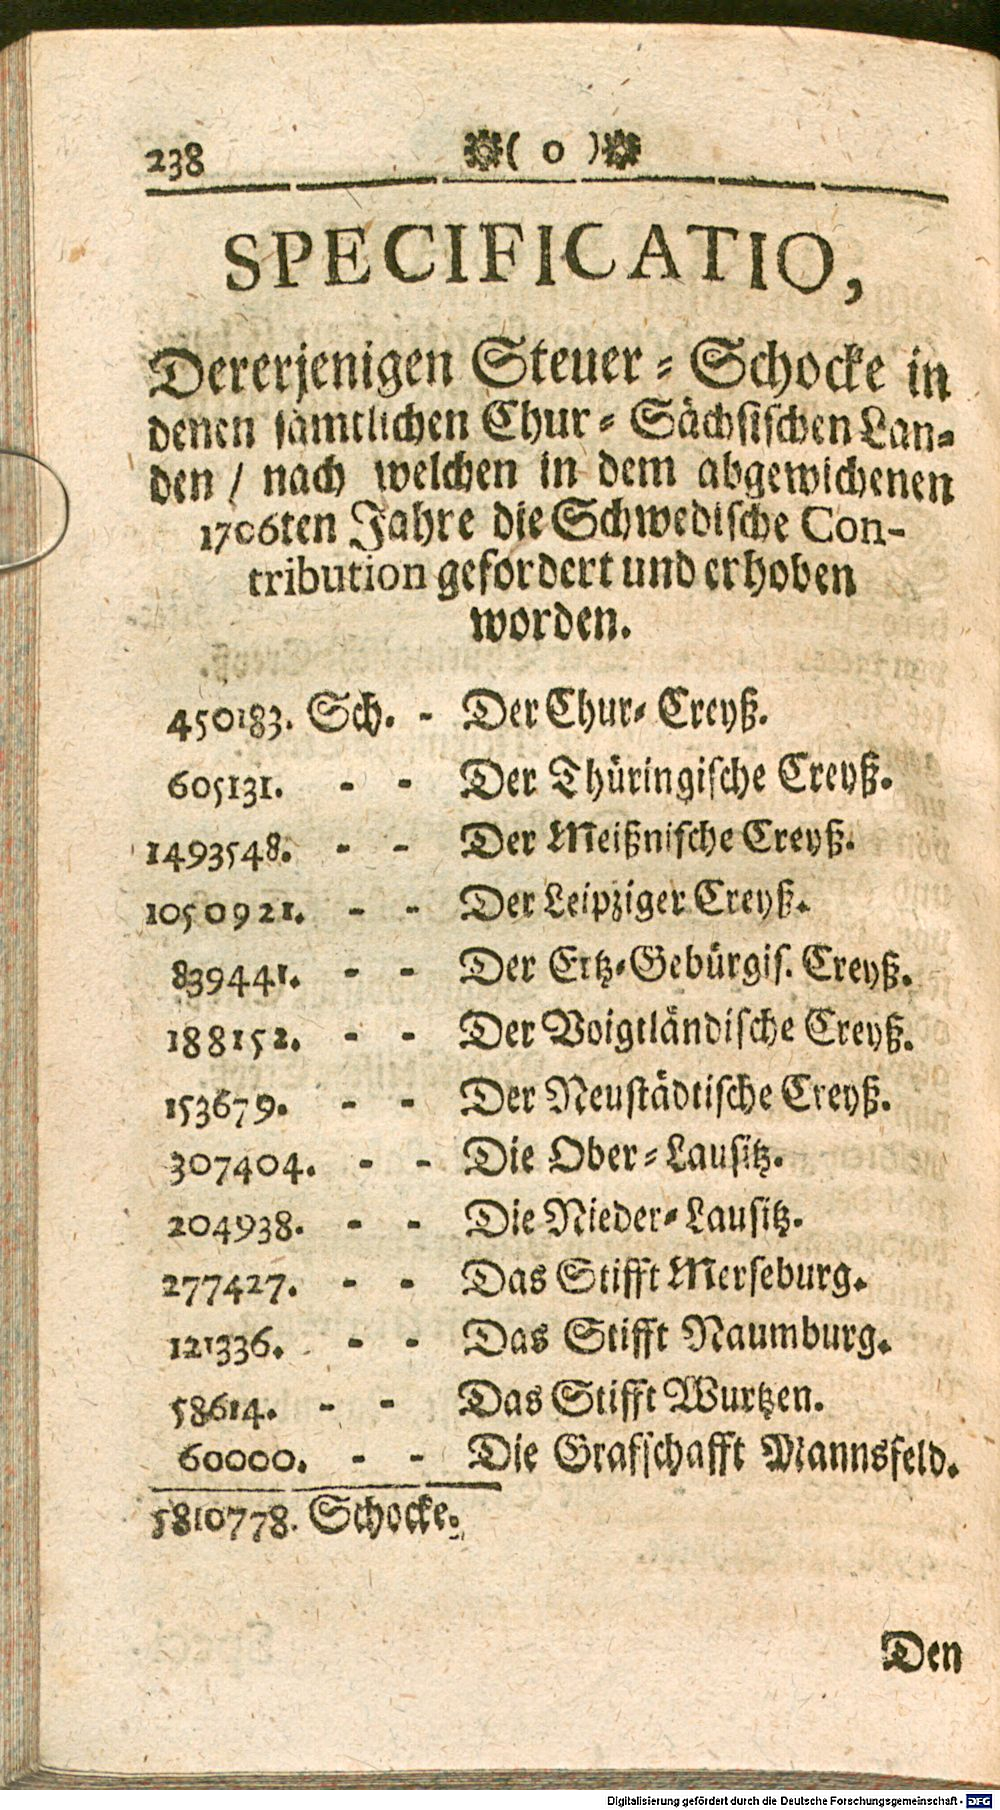 238 ❋( o )❋
SPECIFICATIO,
Dererjenigen Steuer-Schocke in
denen sämtlichen Chur-Sächsischen Lan-
den / nach welchen in dem abgewichenen
1706ten Jahre die Schwedische Con-
tribution gefordert und erhoben
worden.
450183. Sch. - Der Chur-Creyß.
605131. - - Der Thüringische Creyß.
1493548. - - Der Meißnische Creyß.
1050921. - - Der Leipziger Creyß.
839441. - - Der Ertz-Gebürgis. Creyß.
188152. - - Der Voigtländische Creyß.
153679. - - Der Neustädtische Creyß.
307404. - - Die Ober-Lausitz.
204938. - - Die Nieder-Lausitz.
277427. - - Das Stifft Merseburg.
121336. - - Das Stifft Naumburg.
58614. - - Das Stifft Wurtzen.
60000. - - Die Grafschafft Mannsfeld.
5810778. Schocke.
Den
Digitalisierung gefördert durch die Deutsche Forschungsgemeinschaft - DFG